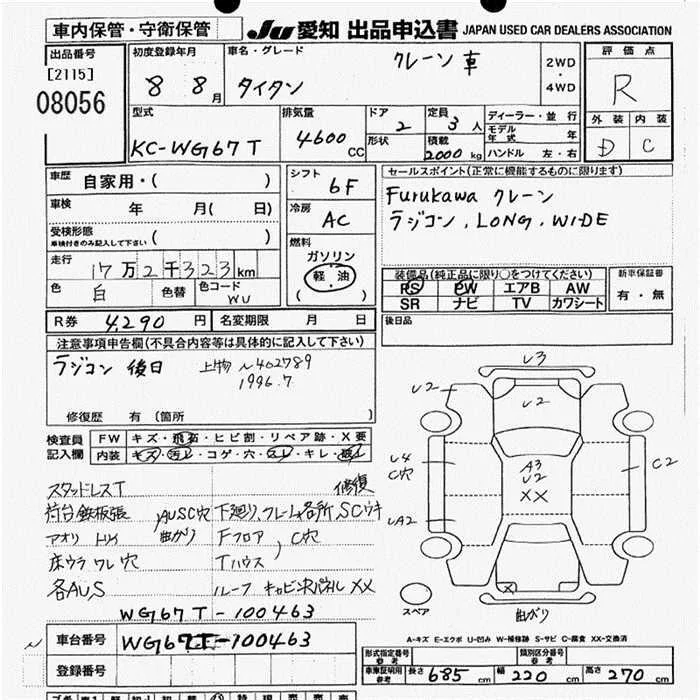 車内保管・守衛保管
JU 愛知 出品申込書 JAPAN USED CAR DEALERS ASSOCIATION
出品番号
[2115]
08056
初度登録年月
8 8月
車名・グレード
クレーン車
タイタン
2WD
・
4WD
評価点
R
外装 内装
D C
型式
KC-WG67T
排気量
4600cc
ドア
2
定員
3人
形状
積載
2000kg
ディーラー・並行
モデル年式 年
ハンドル 左・右
車歴 自家用・( )
車検 年 月( 日)
受検形態
車検付きのみ記入して下さい ( )
走行 17万2千323km
色 白 色替 色コード WU
シフト
6F
冷房
AC
燃料
ガソリン
軽油
( )
セールスポイント(正常に機能するものに限ります)
Furukawa クレーン
ラジコン, LONG, WIDE
装備品(純正品に限り○をつけてください)
PS PW エアB AW
SR ナビ TV カワシート
新車保証書
有・無
R券 4,290円 名変期限 月 日
後日品
注意事項申告欄(不具合内容等は具体的に記入して下さい)
ラジコン 後日 上物 N402789
1996.7
修復歴 有(箇所 )
検査員
記入欄
FW キズ・飛石・ヒビ割・リペア跡・X要
内装 キズ・汚レ・コゲ・穴・スレ・キレ・破レ
U3
U2
U2
U4
C穴
A3
U2
XX
C2
UA2
X
スペア
曲がり
スタッドレスT 修復
荷台鉄板張 AUSC穴 下廻り,フレーム各所,SCサキ
アオリ 曲がり Fフロア C穴
床ウラ ワレ 穴 Tハウス
各AU,S ルーフ XX
WG67T-100463
車台番号 WG67T-100463
登録番号
A-キズ E-エクボ U-凹み W-補修跡 S-サビ C-腐食 XX-交換済
型式指定番号
参考
類別区分番号
参考
車庫証明用
参考
長さ 685cm 幅 220cm 高さ 270cm